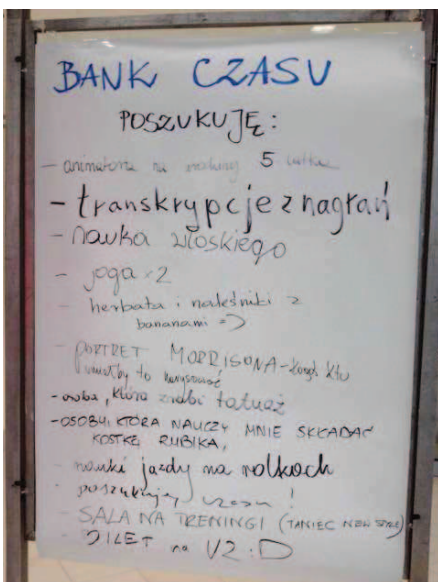 BANK CZASU
POSZUKUJĘ:
- animatora na urodziny 5 latka
- transkrypcje z nagrań
- nauka włoskiego
- joga x2
- herbata i naleśniki z
bananami =)
- PORTRET MORRISONA - kogoś kto
umiałby to narysować
- osoba, która zrobi tatuaż
- OSOBY, KTÓRA NAUCZY MNIE SKŁADAĆ
KOSTKĘ RUBIKA,
- nauki jazdy na rolkach
- poszukuję czasu!
- SALA NA TRENINGI (TANIEC NEW STYLE)
- BILET na U2 :D